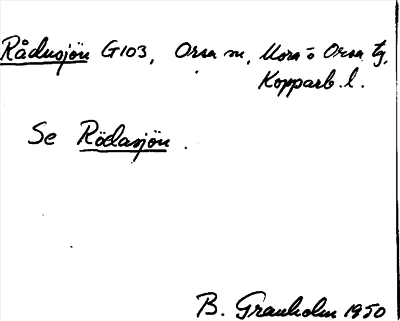 Rådusjön G103, Orsa sn, Mora o Orsa tg,
Kopparb. l.
Se Rödasjön.
B. Granholm 1950